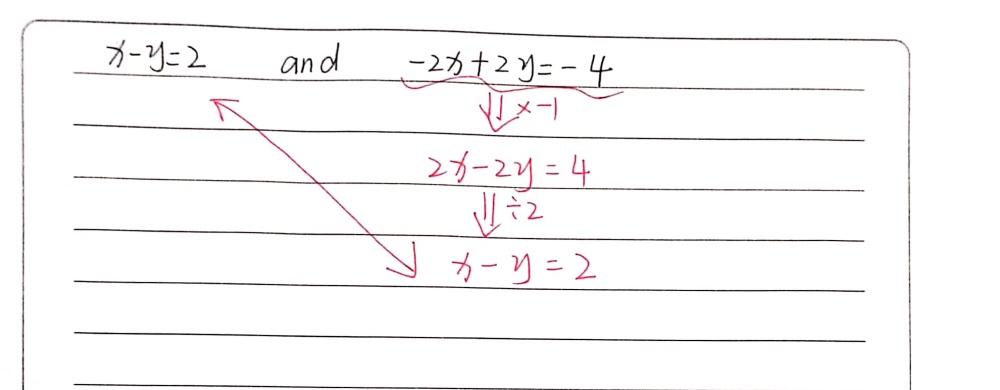 x-y=2 and -2x+2y=-4
⇓×-1
2x-2y=4
⇓÷2
x-y=2